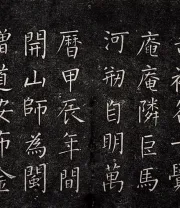 一覺
庵庵隣巨馬
河朔自明萬
曆甲辰年間
開山師為閩
道安布金